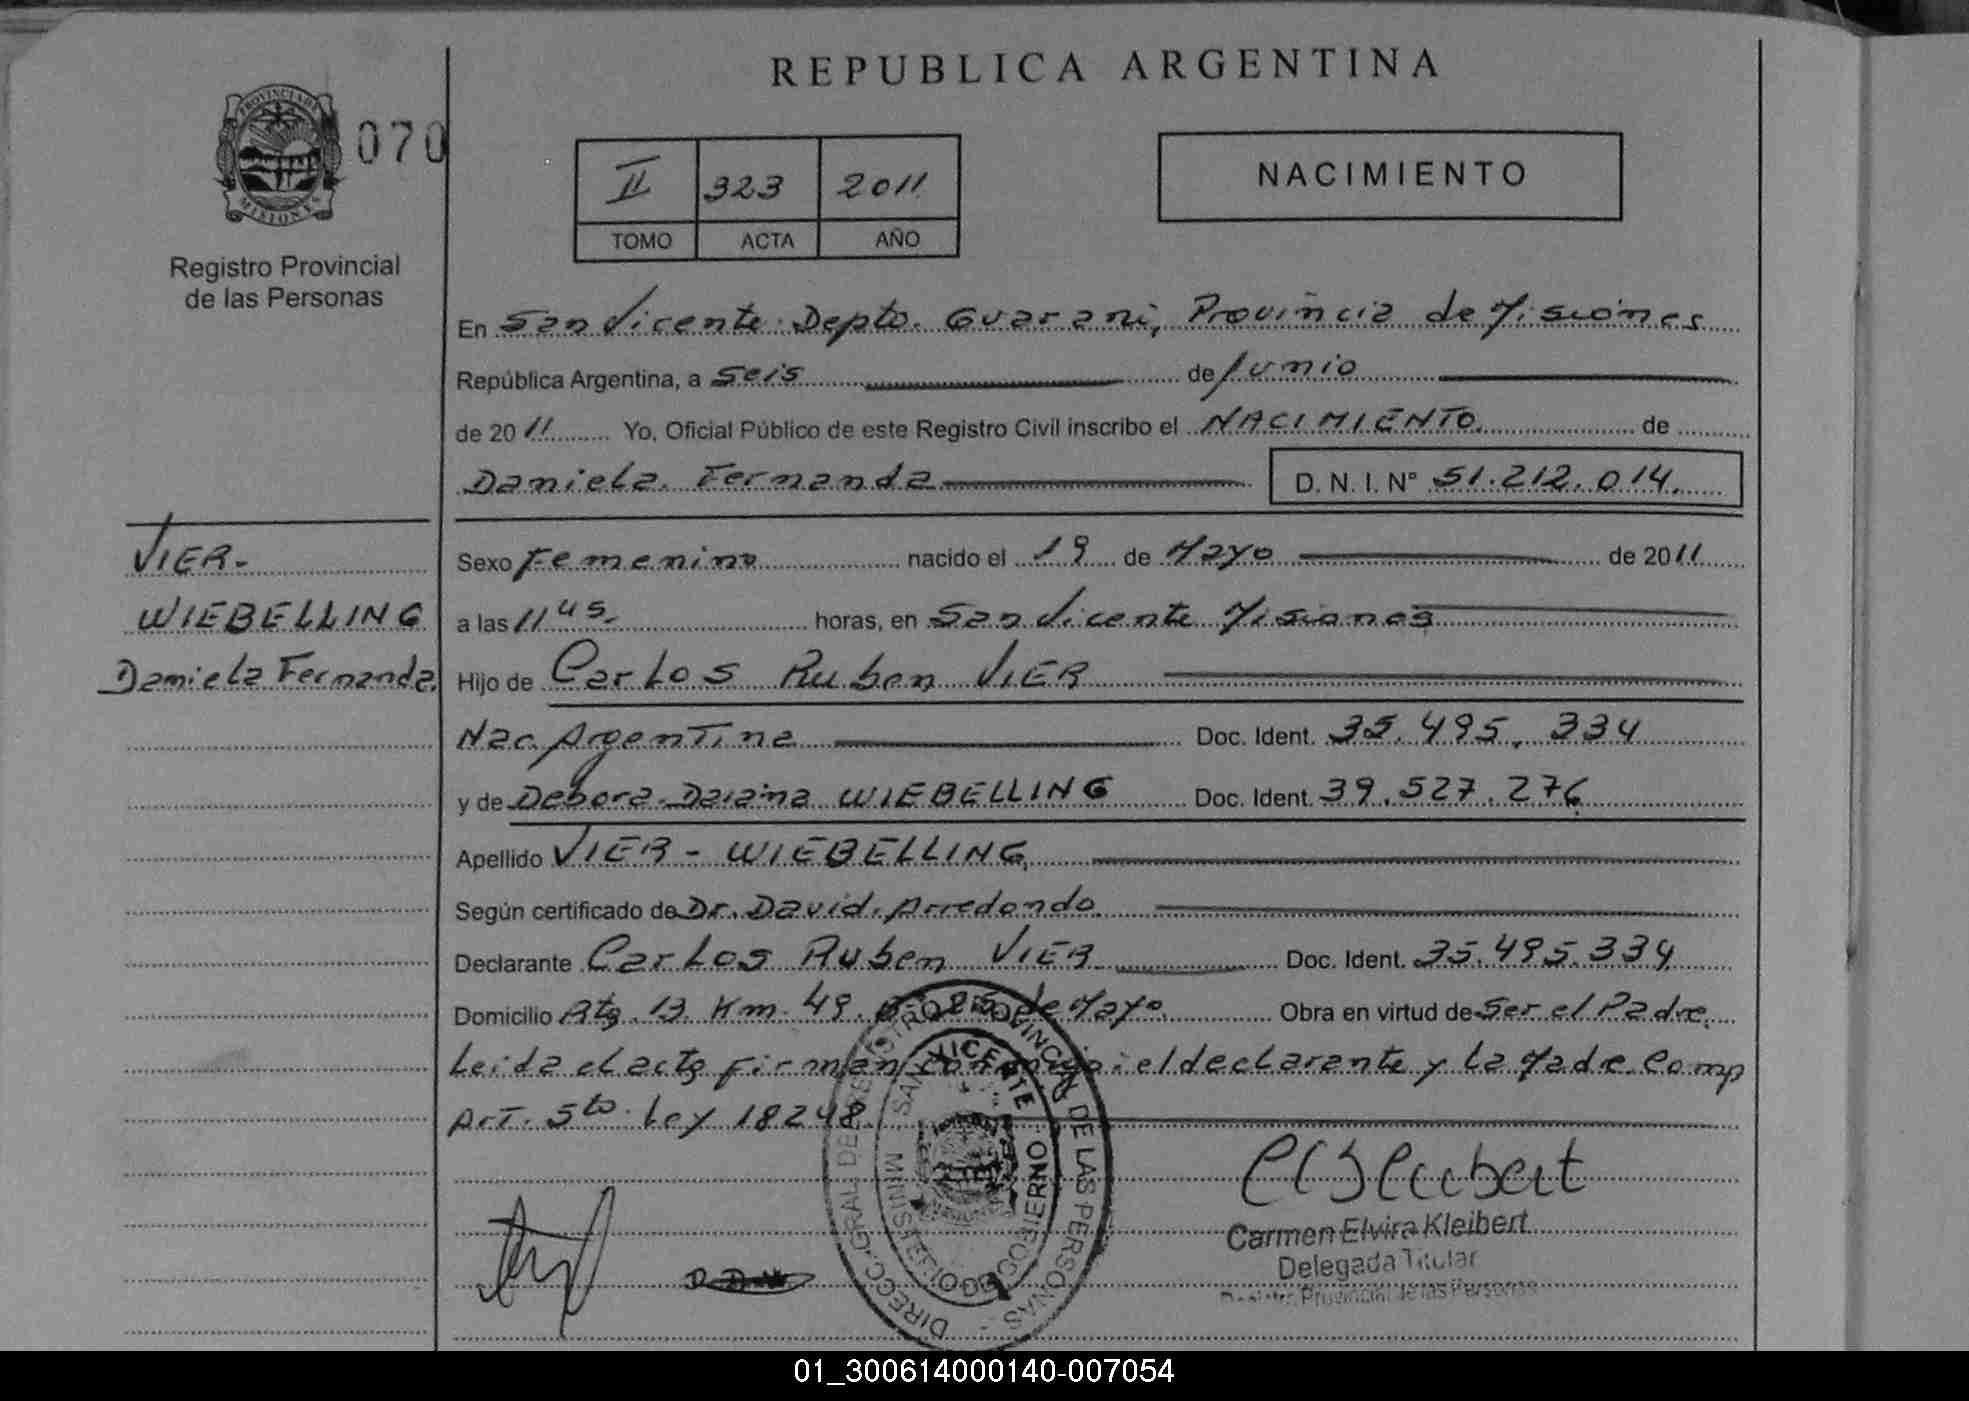 REPUBLICA ARGENTINA
PROVINCIA DE MISIONES
070
II 323 2011
TOMO ACTA AÑO
NACIMIENTO
Registro Provincial
de las Personas
En San Vicente Depto. Guarani, Provincia de Misiones
República Argentina, a Seis de Junio
de 2011 Yo, Oficial Público de este Registro Civil inscribo el NACIMIENTO de
Daniela Fernanda D. N. I. N° 51.212.014.
VIER-
WIEBELLING
Daniela Fernanda.
Sexo Femenino nacido el 19 de Mayo de 2011
a las 11 45. horas, en San Vicente Misiones
Hijo de Carlos Ruben VIER
Nac. Argentina Doc. Ident. 35.495.334
y de Debora Daiana WIEBELLING Doc. Ident. 39.527.276
Apellido VIER - WIEBELLING
Según certificado de Dr. David Arredondo
Declarante Carlos Ruben VIER Doc. Ident. 35.495.334
Domicilio Rta. 13 Km. 49. 25 de Mayo. Obra en virtud de Ser el Padre.
Leida el acta firman conmigo: el declarante y la Madre. Comp
Art. 5to. Ley 18248.
DIRECC. GRAL DE REGISTRO PROVINCIAL DE LAS PERSONAS
SAN VICENTE
MINISTERIO DE GOBIERNO
Carmen Elvira Kleibert
Delegada Titular
Registro Provincial de las Personas
01_300614000140-007054